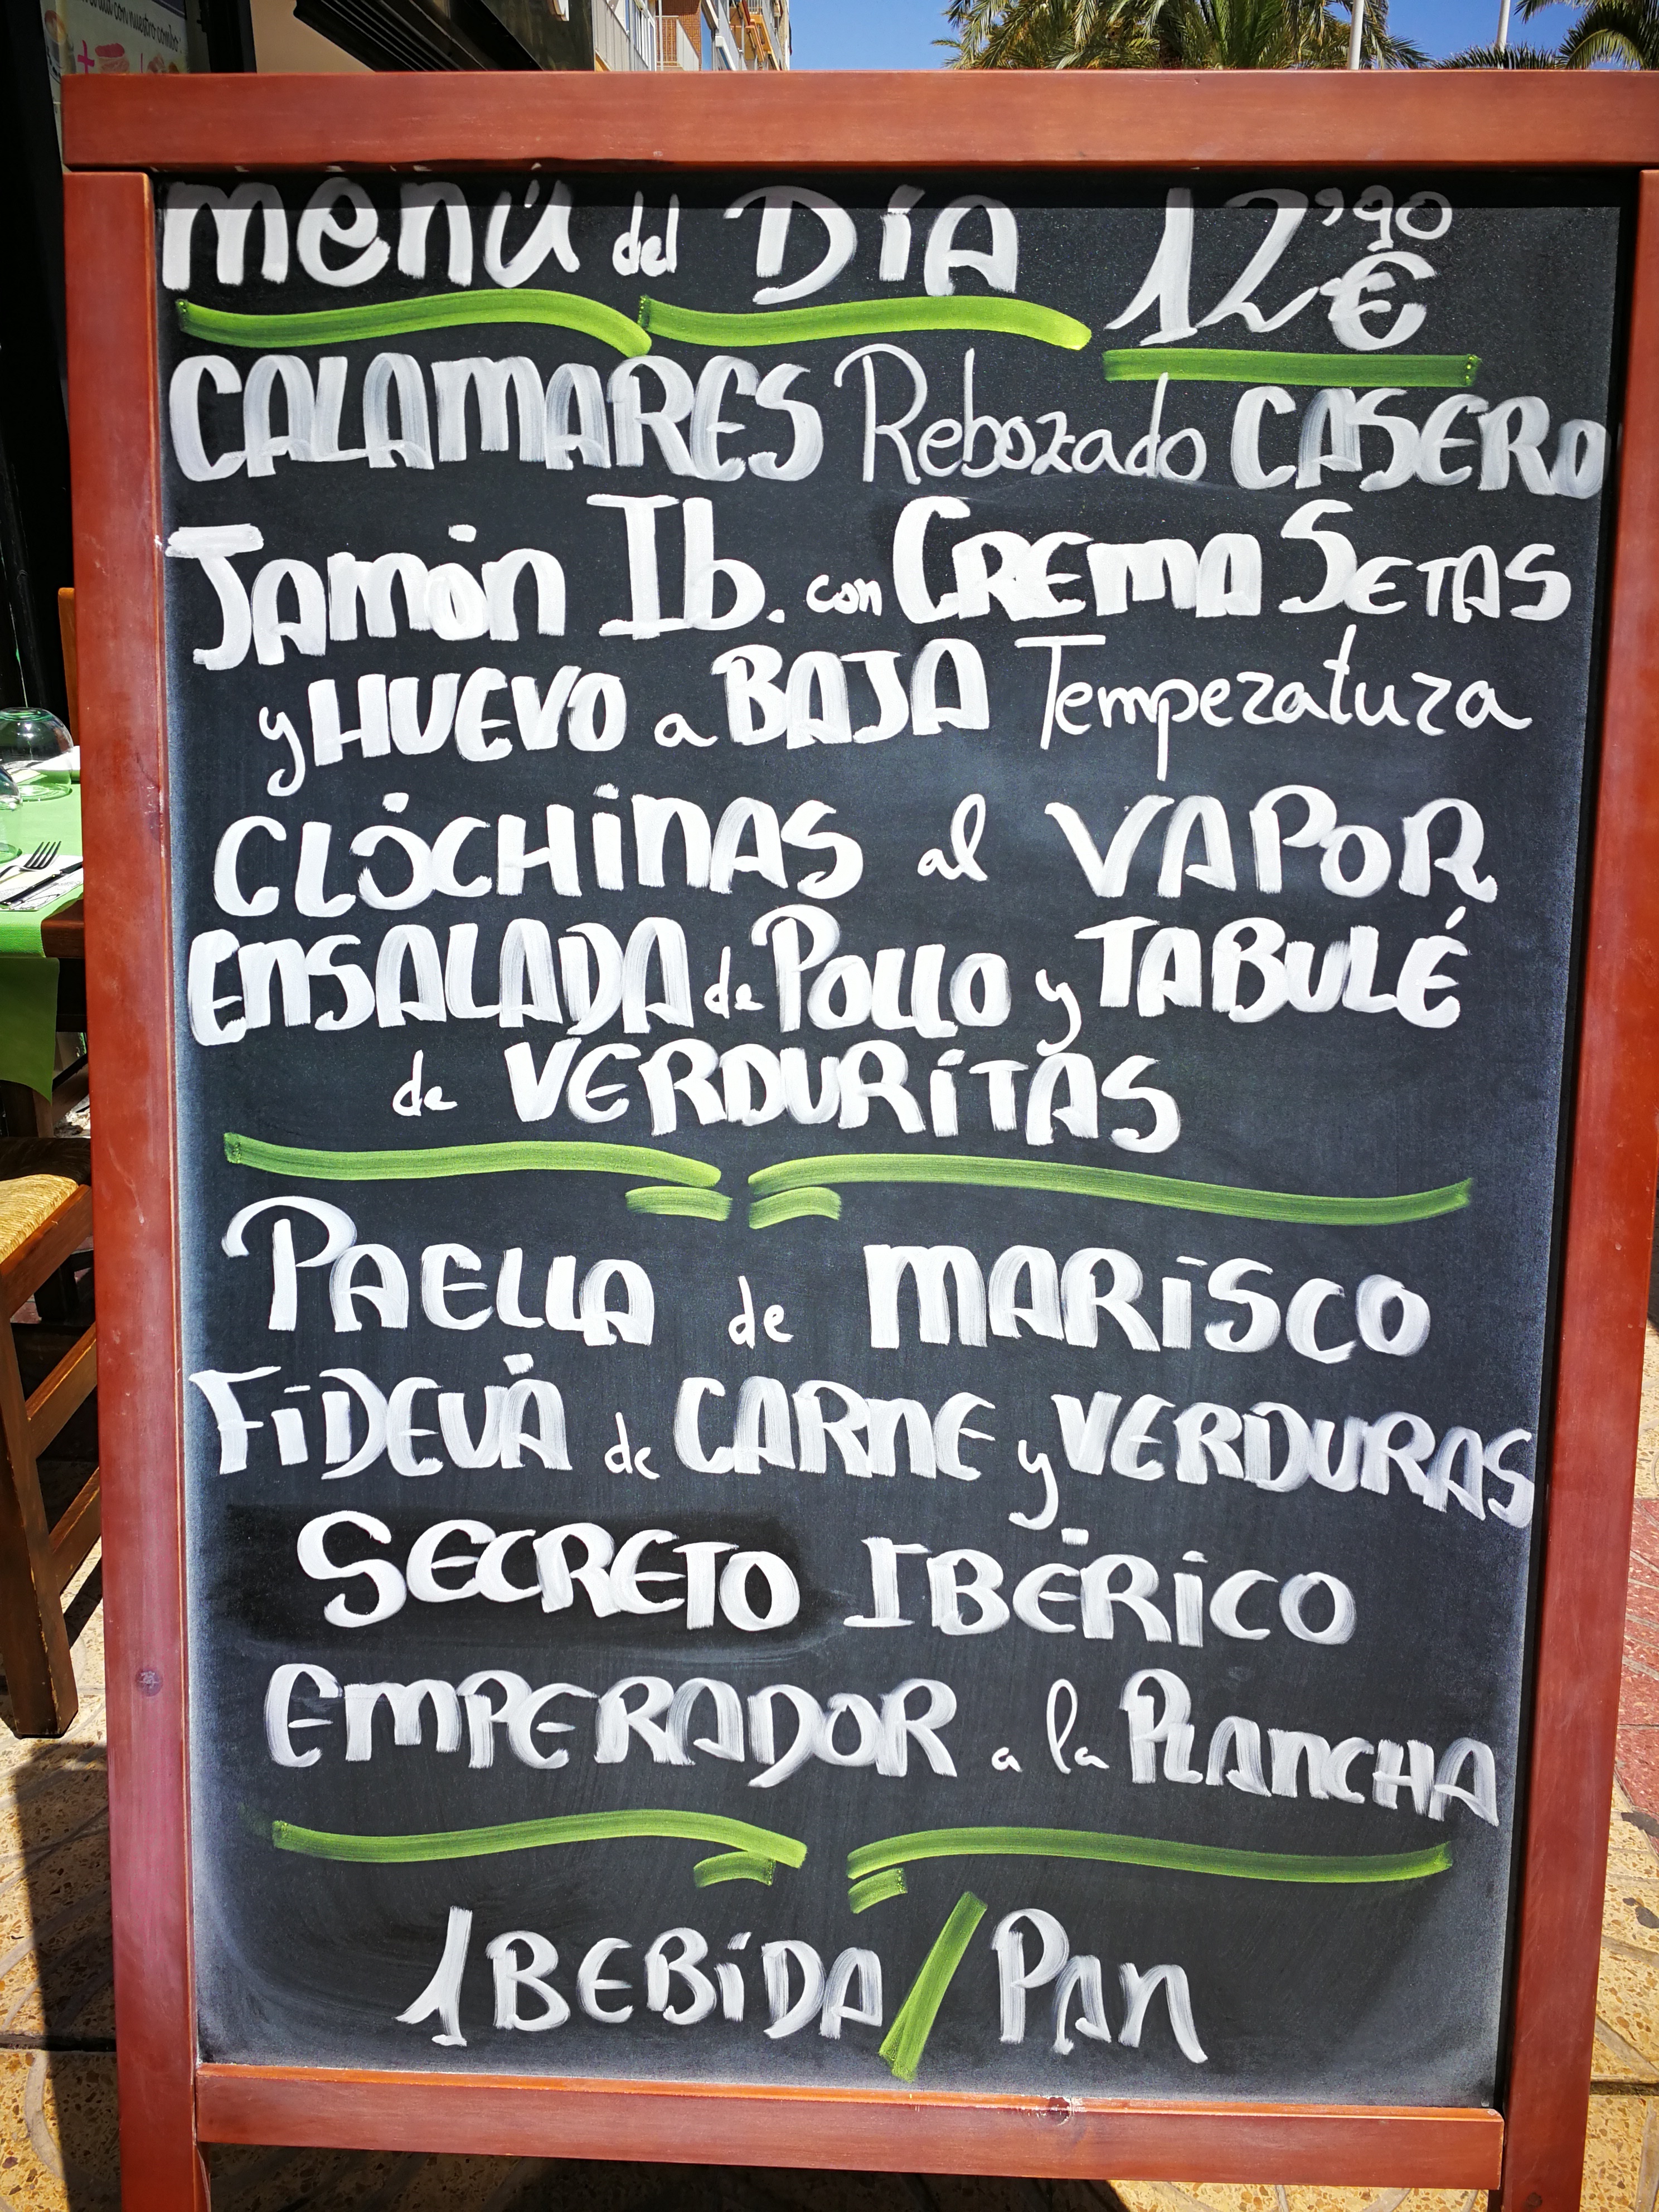 con nuestro combo
menú del Día 12'90 €
CALAMARES Rebozado CASERO
Jamón Ib. con CREMA SETAS
y HUEVO a BAJA Temperatura
CLÓCHINAS al VAPOR
ENSALADA de POLLO y TABULÉ
de VERDURITAS
PAELLA de MARISCO
FIDEUÁ de CARNE y VERDURAS
SECRETO IBÉRICO
EMPERADOR a la PLANCHA
1 BEBIDA / PAN